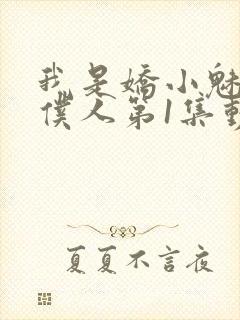 我是嬌小魅
僕人第1集動
夏夏不言夜